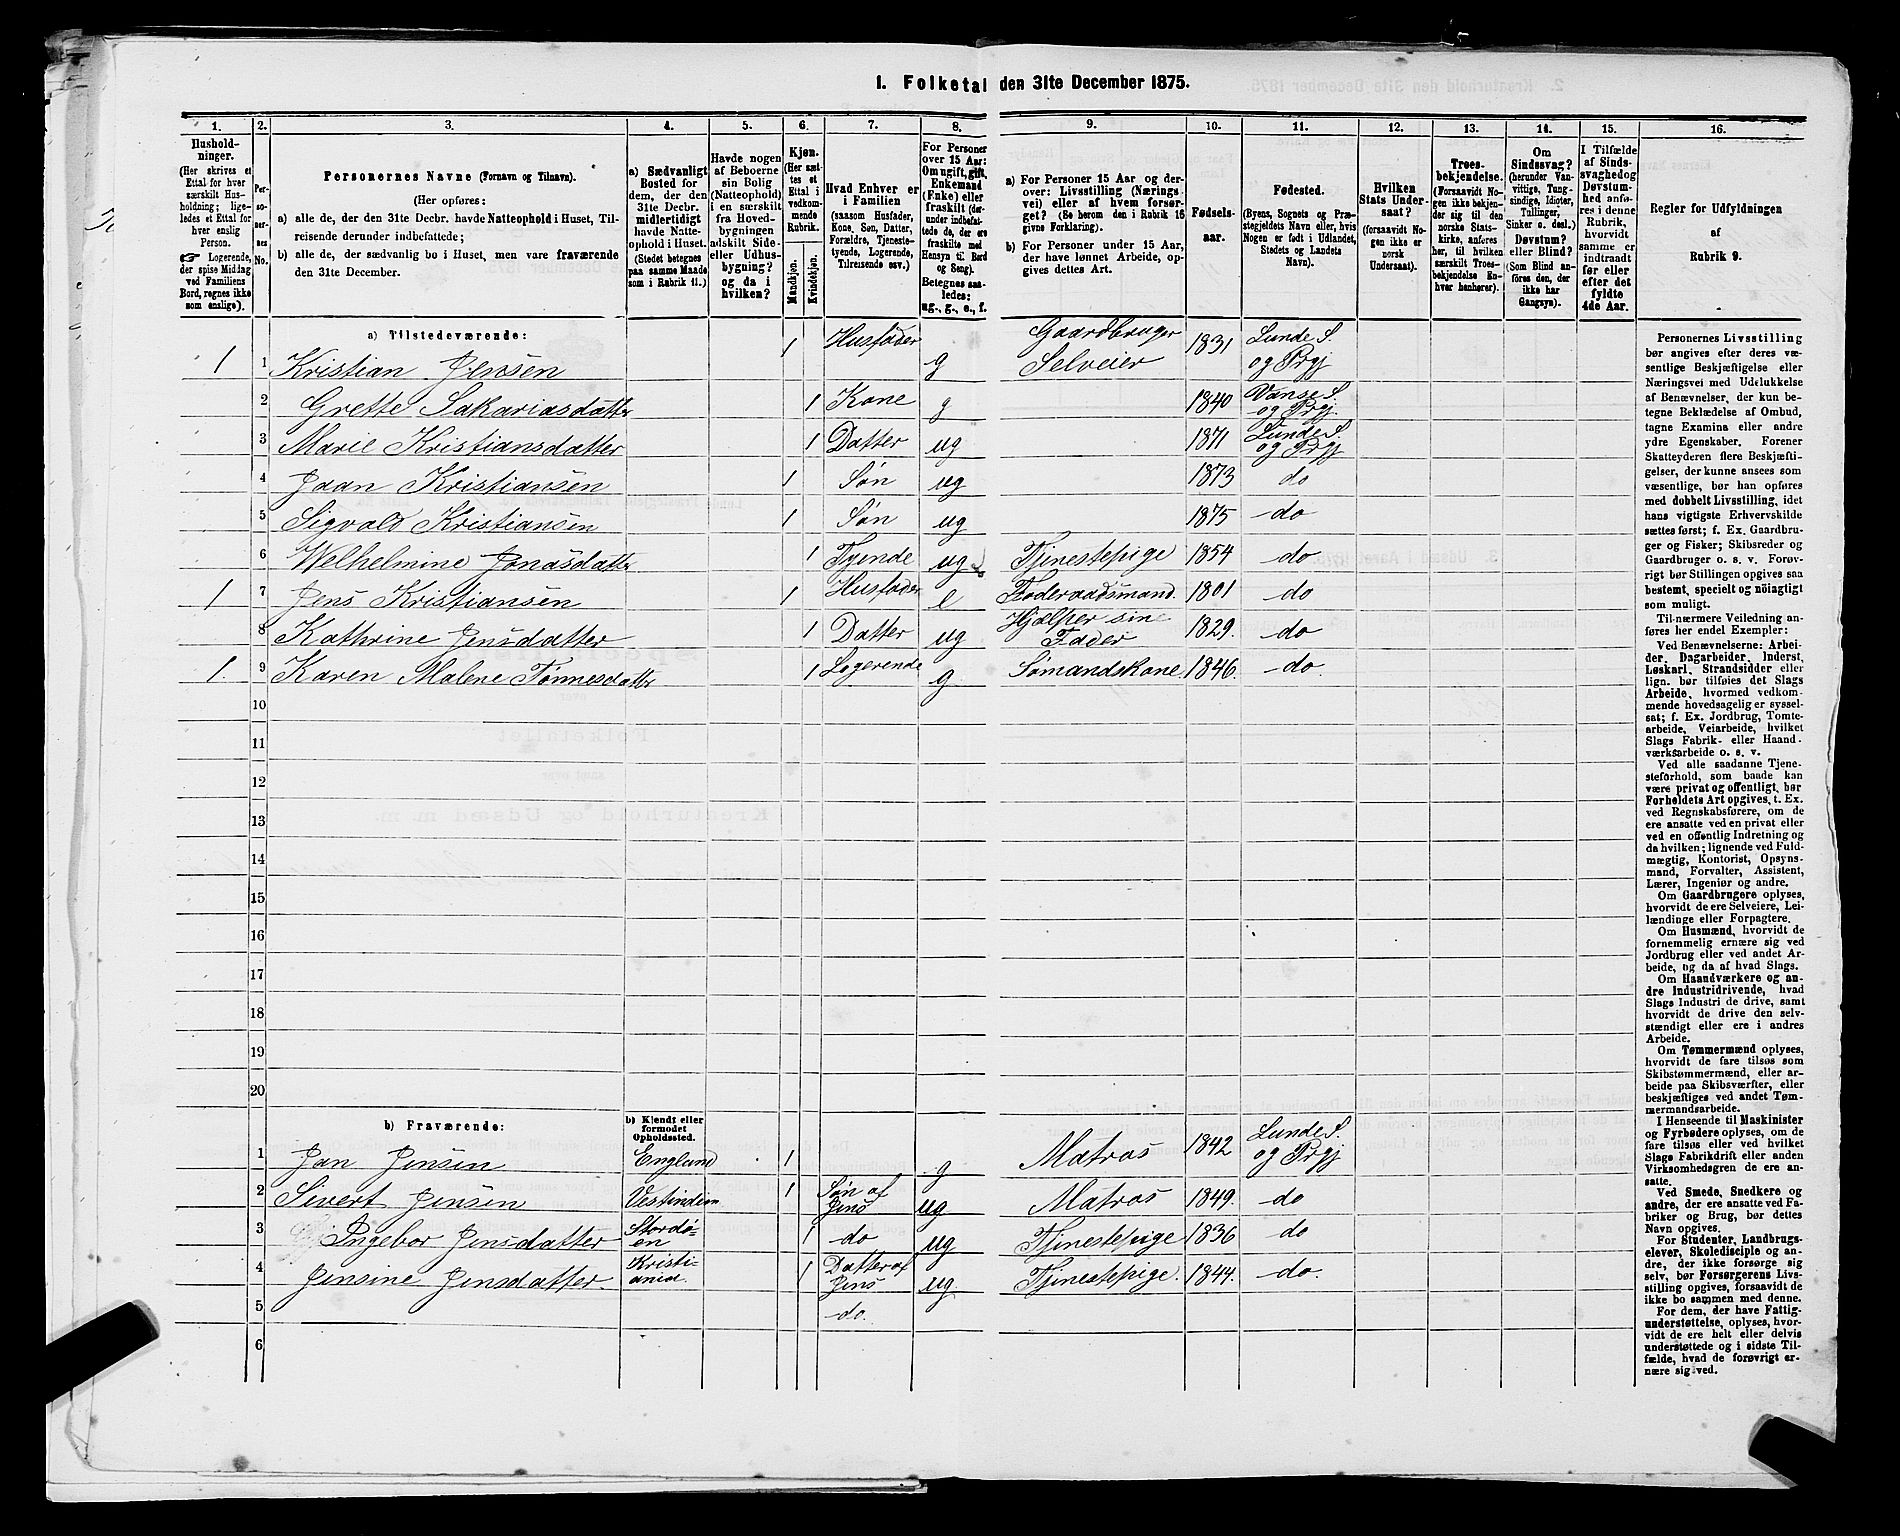 1. Folketal den 31te December 1875.
1. 2. 3. 4. 5. 6. 7. 8. 9. 10. 11. 12. 13. 14. 15. 16.
Hushold-
ninger.
(Her skrives et
Ettal for hver
særskilt Hus-
holdning; lige-
ledes et Ettal for
hver enslig
Person.
☞ Logerende,
der spise Middag
ved Familiens
Bord, regnes ikke
som enslige).
Per-
so-
ner-
nes
No.
Personernes Navne (Fornavn og Tilnavn).
(Her opføres:
a) alle de, der den 31te Decbr. havde Natteophold i Huset, Til-
reisende derunder indbefattede;
b) alle de, der sædvanlig bo i Huset, men vare fraværende
den 31te December.
a) Sædvanligt
Bosted for
dem, der den
31te Decbr.
midlertidigt
havde Natte-
ophold i Huset.
(Stedet betegnes
paa samme Maade
som i Rubrik 11.)
Havde nogen
af Beboerne
sin Bolig
(Natteophold)
i en særskilt
fra Hoved-
bygningen
adskilt Side-
eller Udhus-
bygning?
og da i
hvilken?
Kjøn.
(Her sæt-
tes et
Ettal i
vedkom-
mende
Rubrik.
Mandkjøn.
Kvindekjøn.
Hvad Enhver er
i Familien
(saasom Husfader,
Kone, Søn, Datter,
Forældre, Tjeneste-
tyende, Logerende,
Tilreisende osv.)
For Personer
over 15 Aar:
Om ugift, gift,
Enkemand
(Enke) eller
fraskilt (der-
under indbefat-
tede de, der ere
fraskilte med
Hensyn til Bord
og Seng).
Betegnes saa-
ledes:
ug., g., e., f.
a) For Personer 15 Aar og der-
over: Livsstilling (Nærings-
vei) eller af hvem forsør-
get? (Se herom den i Rubrik 16
givne Forklaring).
b) For Personer under 15 Aar,
der have lønnet Arbeide, op-
gives dettes Art.
Fødsels-
aar.
Fødested.
(Byens, Sognets og Præ-
stegjeldets Navn eller, hvis
Nogen er født i Udlandet,
Stedets og Landets
Navn).
Hvilken
Stats Under-
saat?
(forsaavidt No-
gen ikke er
norsk
Undersaat).
Troes-
bekjendelse.
(Forsaavidt No-
gen ikke bekjen-
der sig til den
norske Stats-
kirke, anføres
her, til hvilken
særskilt Troes-
bekjendelse En-
hver henhører).
Om
Sindssvag?
(herunder Van-
vittige, Tung-
sindige, Idioter,
Tullinger,
Sinker o. desl.)
Døvstum?
eller Blind?
(Som Blind an-
føres den, der
ikke har
Gangsyn).
I Tilfælde
af Sinds-
svaghed og
Døvstum-
hed anfø-
res i denne
Rubrik,
hvorvidt
samme er
indtraadt
før eller
efter det
fyldte
4de Aar.
Regler for Udfyldningen
af
Rubrik 9.
a) Tilstedeværende:
1 1 Kristian Jensen 1 Husfader g Gaardbruger Selveier 1831 Lunde S. og Prgj
2 Grette Sakariasdatter 1 Kone g 1840 Vanse S. og Prgj.
3 Marie Kristiansdatter 1 Datter ug 1871 Lunde S. og Prgj
4 Jaan Kristiansen 1 Søn ug 1873 do
5 Sigvald Kristiansen 1 Søn ug 1875 do
6 Welhelmine Jonasdatter 1 Tyende ug Tjinestepige 1854 do
1 7 Jens Kristiansen 1 Husfader e Føderaadsmand. 1801 do
8 Kathrine Jensdatter 1 Datter ug Hjælper sine Fader 1829. do
1. 9 Karen Malene Tønnesdatter 1 Logerende g Sømandskone. 1846. do.
10
11
12
13
14
15
16
17
18
19
20
b) Fraværende:
b) Kjendt eller
formodet
Opholdssted.
1 Jan Jensen England 1 g Matros 1842 Lunde S. og Prgj
2 Sivert Jensen Vestindien 1 Søn af Jens ug Matros 1849. do
3 Ingebor Jensdatter Stordøen 1 do ug Tjinestepige 1836 do
4 Jensine Jensdatter. Kristiania. 1 Datter af Jens ug Tjinestepige. 1844. do.
5 do.
6
Personernes Livsstilling
bør angives efter deres væ-
sentlige Beskjæftigelse eller
Næringsvei med Udelukkelse
af Benævnelser, der kun be-
tegne Beklædelse af Ombud,
tagne Examina eller andre
ydre Egenskaber. Forener
Skatteyderen flere Beskjæfti-
gelser, der kunne ansees som
væsentlige, bør han opføres
med dobbelt Livsstilling, idet
hans vigtigste Erhvervskilde
sættes først; f. Ex. Gaardbru-
ger og Fisker; Skibsreder og
Gaardbruger o. s. v. Forøv-
rigt bør Stillingen opgives saa
bestemt, specielt og nöiagtigt
som muligt.
Til nærmere Veiledning an-
føres her endel Exempler:
Ved Benævnelserne: Arbei-
der, Dagarbeider, Inderst,
Løskarl, Strandsidder eller
lign. bør tilføies det Slags
Arbeide, hvormed vedkom-
mende hovedsagelig er syssel-
sat; f. Ex. Jordbrug, Tomte-
arbeide, Veiarbeide, hvilket
Slags Fabrik- eller Haand-
værksarbeide o. s. v.
Ved alle saadanne Tjene-
steforhold, som baade kan
være privat og offentligt, bør
Forholdets Art opgives, t. Ex.
ved Regnskabsførere, om de
ere ansatte ved en privat eller
ved en offentlig Indretning og
da hvilken; lignende ved Fuld-
mægtig, Kontorist, Opsyns-
mand, Forvalter, Assistent,
Lærer, Ingeniør og andre.
Om Gaardbrugere oplyses,
hvorvidt de ere Selveiere, Lei-
lændinge eller Forpagtere.
Om Husmænd, hvorvidt de
fornemmelig ernære sig ved
Jordbrug eller ved andet Ar-
beide, og da af hvad Slags.
Om Haandværkere og an-
dre Industridrivende, hvad
Slags Industri de drive, samt
hvorvidt de drive den selv-
stændigt eller ere i andres
Arbeide.
Om Tømmermænd oplyses,
hvorvidt de fare tilsøs som
Skibstømmermænd, eller ar-
beide paa Skibsværfter, eller
beskjæftiges ved andet Tøm-
mermandsarbeide.
I Henseende til Maskinister
og Fyrbødere oplyses, om de
fare tilsøs eller ved hvilket
Slags Fabrikdrift eller anden
Virksomhedsgren de ere an-
satte.
Ved Smede, Snedkere og
andre, der ere ansatte ved Fa-
briker og Brug, bør dettes
Navn opgives.
For Studenter, Landbrugs-
elever, Skoledisciple og an-
dre, der ikke forsørge sig
selv, bør Forsørgerens Livs-
stilling opgives, forsaavidt de
ikke bo sammen med denne.
For dem, der have Fattig-
understøttelse, oplyses, hvor-
vidt de ere helt eller delvis
understøttede og i sidste Til-
fælde, hvad de forøvrigt er-
nære sig ved.